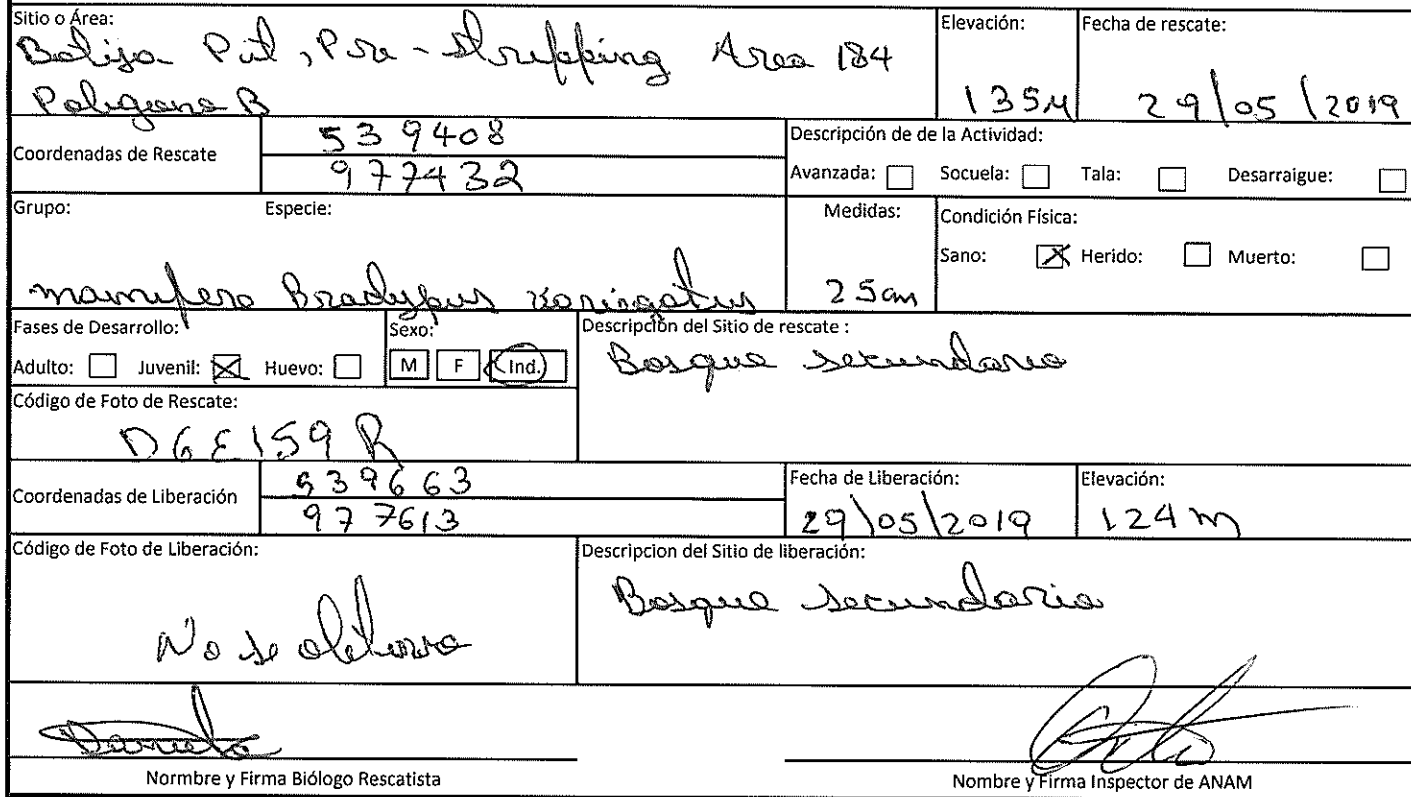 Sitio o Área:
Botija Pit, Pre-stripping Area 184
Poligono B
Elevación:
135M
Fecha de rescate:
29/05/2019
Coordenadas de Rescate
539408
977432
Descripción de de la Actividad:
Avanzada: Socuela: Tala: Desarraigue:
Grupo: Especie:
mamifero Bradypus variegatus
Medidas:
25cm
Condición Física:
Sano: X Herido: Muerto:
Fases de Desarrollo:
Adulto: Juvenil: X Huevo:
Sexo:
M F Ind.
Descripción del Sitio de rescate :
Bosque secundario
Código de Foto de Rescate:
DGE159R
Coordenadas de Liberación
539663
977613
Fecha de Liberación:
29/05/2019
Elevación:
124m
Código de Foto de Liberación:
No se obtuvo
Descripcion del Sitio de liberación:
Bosque secundario
Normbre y Firma Biólogo Rescatista
Nombre y Firma Inspector de ANAM